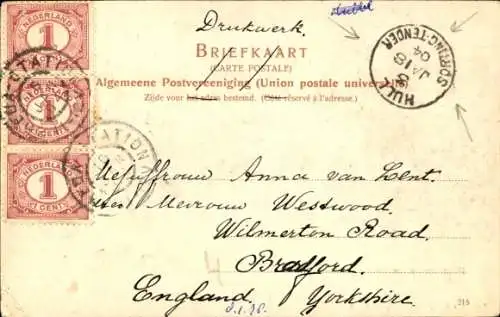 Drukwerk.
BRIEFKAART
(CARTE POSTALE)
Algemeene Postvereeniging (Union postale universelle)
Zijde voor het adres bestemd. (Côté réservé à l'adresse.)
NEDERLAND
1
CENT
NEDERLAND
1
CENT
NEDERLAND
1
CENT
STATION
STATION
HULL
JA 18
04
TENDER
Mejuffrouw Anna van Lent.
Mevrouw Westwood.
Wilmerton Road.
Bradford.
England. Yorkshire.
4
315